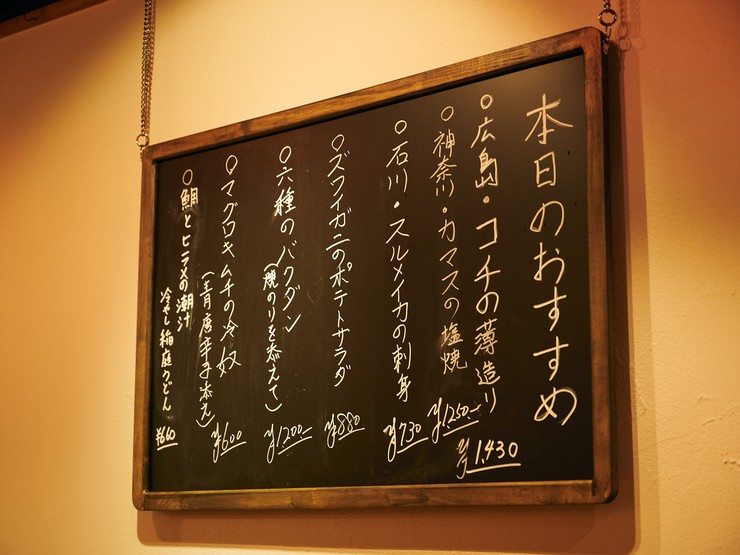 本日のおすすめ
○広島・コチの薄造り ¥1,430
○神奈川・カマスの塩焼 ¥1,250-
○石川・スルメイカの刺身 ¥730
○ズワイガニのポテトサラダ ¥880
○六種のバクダン
(焼のりを添えて) ¥1200-
○マグロキムチの冷奴
(青唐辛子添え) ¥600
○鯛とヒラメの潮汁
冷やし稲庭うどん ¥660